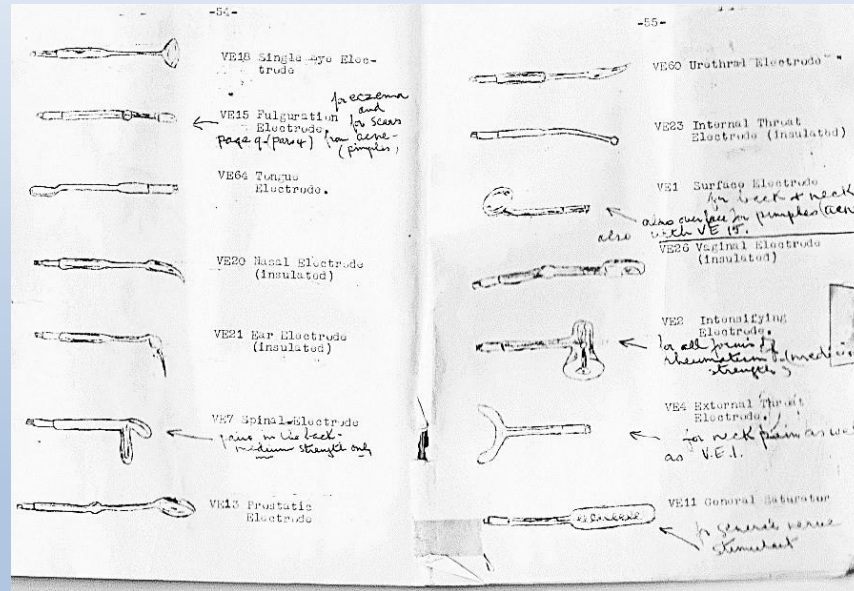 -54-
VE18 Single Eye Elec-
trode
VE15 Fulguration
Electrode.
for eczema
and
for scars
from acne-
(pimples)
page 9 (para 4)
VE64 Tongue
Electrode.
VE20 Nasal Electrode
(insulated)
VE21 Ear Electrode
(insulated)
VE7 Spinal Electrode
pains in the back-
medium strength only
VE13 Prostatic
Electrode
-55-
VE60 Urethral Electrode
VE23 Internal Throat
Electrode (insulated)
VE1 Surface Electrode
for back & neck
also over face for pimples (acn
also with VE 15.
VE26 Vaginal Electrode
(insulated)
VE2 Intensifying
Electrode.
for all forms of
rheumatism (medium
strength)
VE4 External Throat
Electrode.
for neck pain as we
as V.E.1.
VE11 General Saturator
for general nerve
stimulant